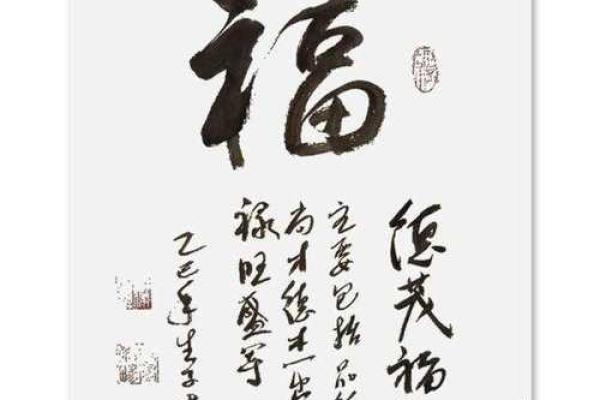 福
德茂福
主要包括品
尚才德才一
禄旺盛等
乙巳年生子